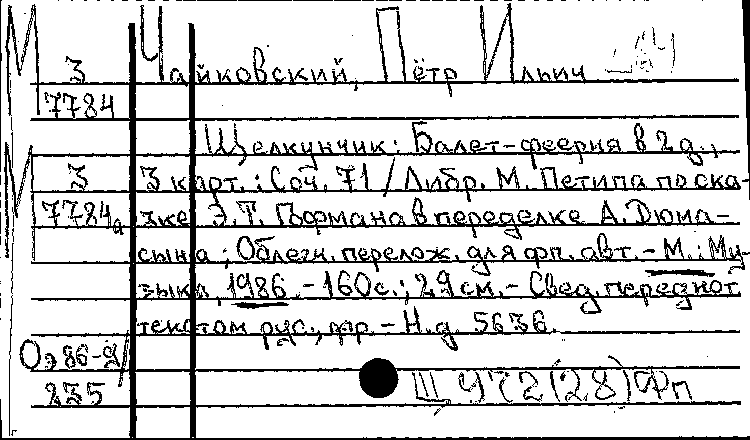 М З Чайковский, Пётр Ильич
7784
Щелкунчик: Балет-феерия в 2 д.,
М З 3 карт.: Соч. 71 / Либр. М. Петипа по ска-
7784а зке Э.Т. Гофмана в переделке А. Дюма-
сына; Облегч. перелож. для фп. авт. - М.: Му-
зыка, 1986. - 160 с.; 29 см. - Свед. перед нот.
текстом рус., фр. - Н.д. 5636.
Оэ 86-2/
235 Щ 972(28)Фп